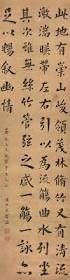 此地有崇山峻領茂林修竹又有清
流激湍映帶左右引以為流觴曲水列坐
其次雖無絲竹管弦之盛一觴一詠亦
足以暢敘幽情